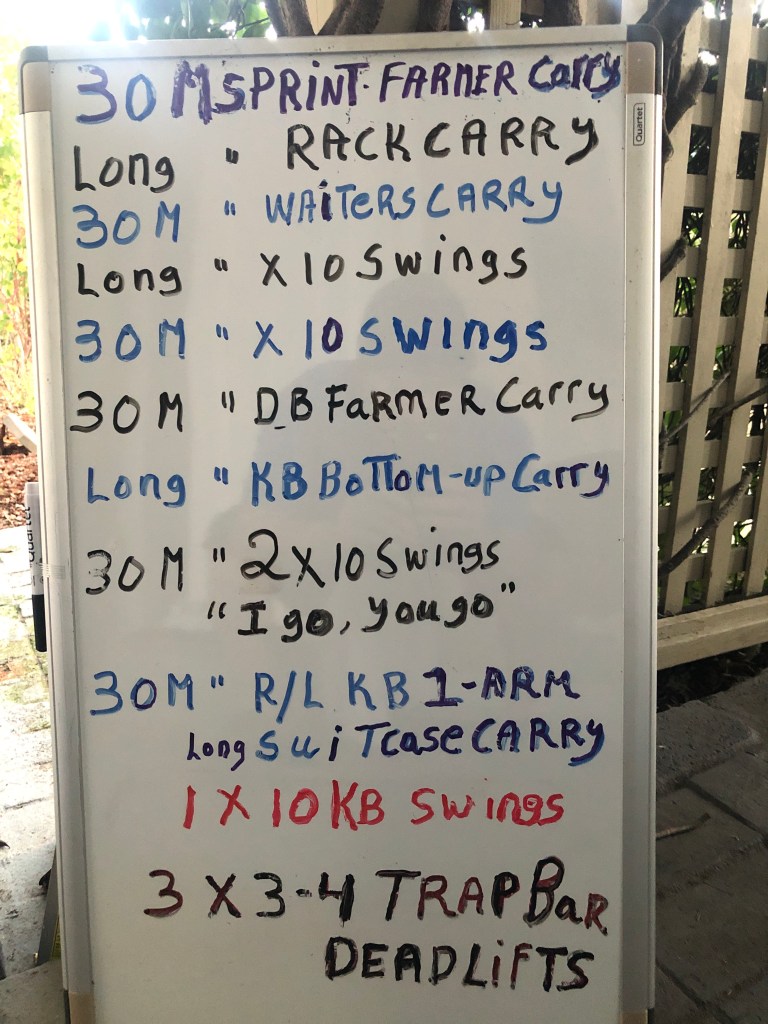 30 M SPRINT FARMER Carry
Long " RACK CARRY
30M " WAiTeRS CARRY
Long " X 10 Swings
30M " X 10 Swings
30M " DB FaRMER Carry
Long " KB BoTToM-up Carry
30M " 2 X 10 Swings
"I go, you go"
30M " R/L KB 1-ARM
Long SuiTcase CARRY
1 X 10 KB Swings
3 X 3-4 TRAP BaR
DEADLiFTS
Quartet
Quartet